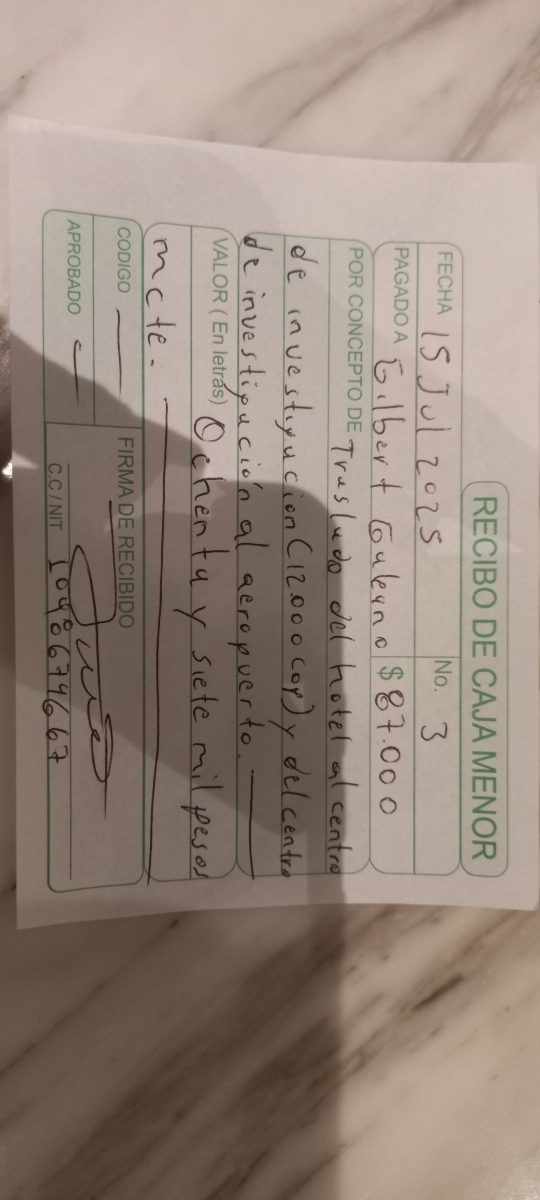 RECIBO DE CAJA MENOR
FECHA 15 Jul 2025 No. 3
PAGADO A Gilbert Galeano $ 87.000
POR CONCEPTO DE Traslado del hotel al centro
de investigacion (12.000 cop) y del centro
de investigación al aeropuerto.
VALOR (En letras) Ochenta y siete mil pesos
mcte.
CODIGO — FIRMA DE RECIBIDO
APROBADO —
C.C / NIT 1090674667